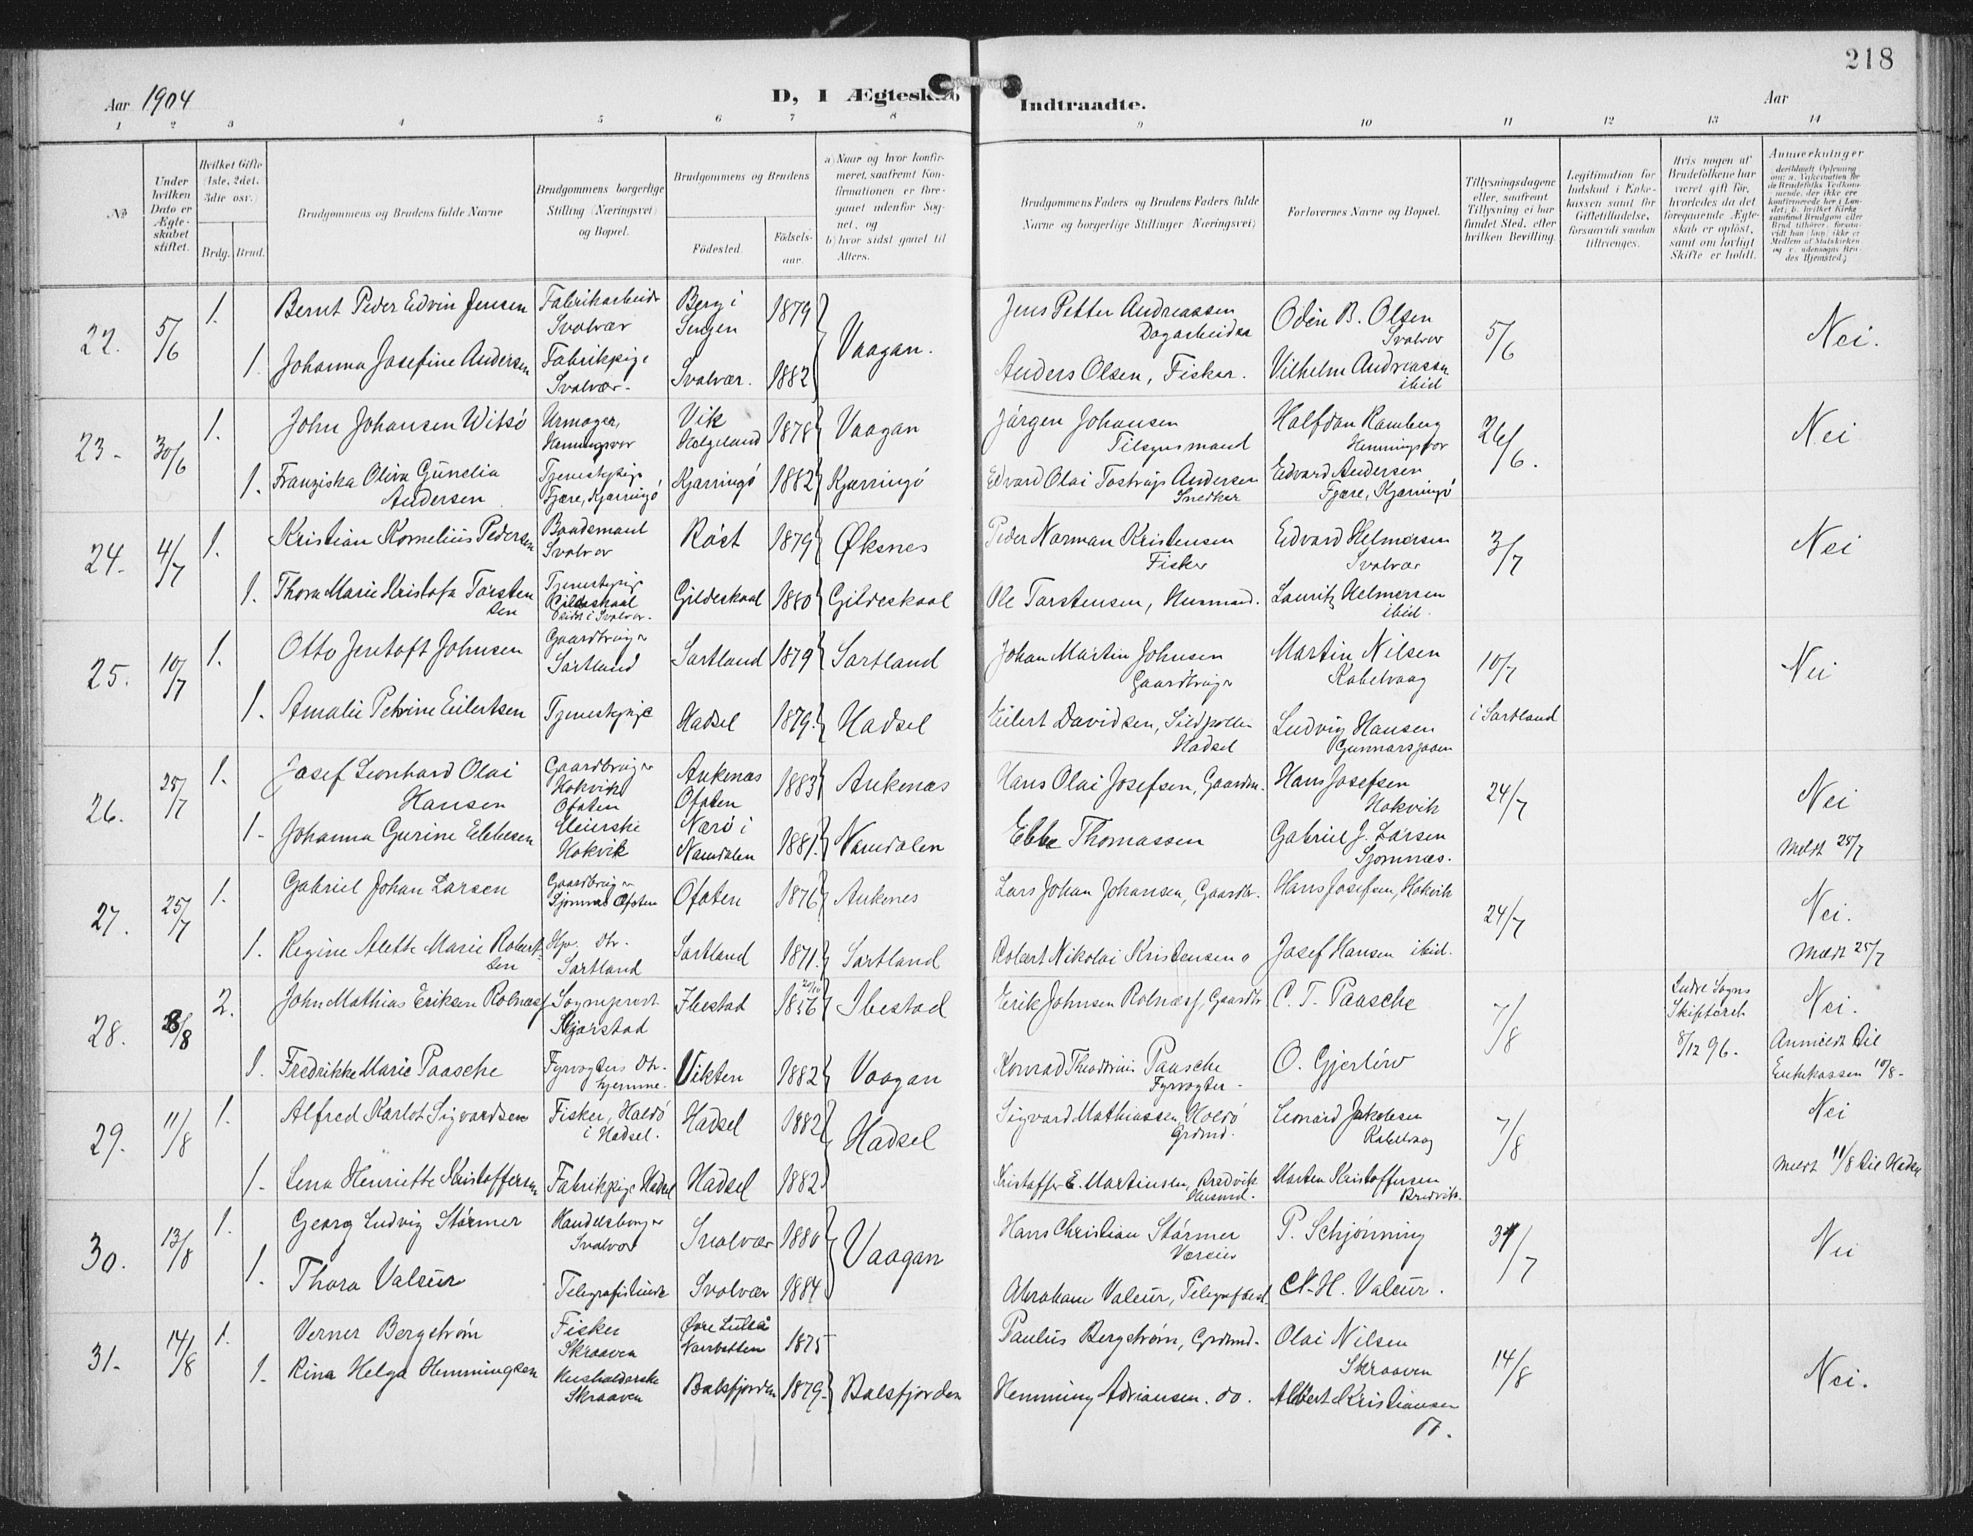 218
Aar 1904
D, I Ægteskab Indtraadte.
Aar
1 2 3 4 5 6 7 8 9 10 11 12 13 14
No
Under hvilken Dato er Ægteskabet stiftet.
Hvilket Gifte (1ste, 2det, 3die osv.)
Brdg. Brud.
Brudgommens og Brudens fulde Navne
Brudgommens borgerlige Stilling (Næringsvei) og Bopæl.
Brudgommens og Brudens
Fødested.
Fødselsaar.
a) Naar og hvor konfirmeret, saafremt Konfirmationen er foregaaet udenfor Sognet, og
b) hvor sidst gaaet til Alters.
Brudgommens Faders og Brudens Faders fulde Navne og borgerlige Stillinger (Næringsvei)
Forlovernes Navne og Bopæl.
Tillysningsdagene eller, saafremt Tillysning ei har fundet Sted, efter hvilken Bevilling.
Legitimation for Indskud i Enkekassen samt for Giftetilladelse, forsaavidt saadan tiltrænges.
Hvis nogen af Brudefolkene har været gift før, hvorledes da det foregaaende Ægteskab er opløst, samt om lovligt Skifte er holdt.
Anmerkninger
22. 5/6 1. Bernt Peder Edvin Jensen Fabrikarbeider Svolvær Berg i Senjen 1879 Vaagan. Jens Petter Andreassen Dagarbeider Odin B. Olsen Svolvær 5/6 Nei.
1. Johanna Josefine Andersen Fabrikpige Svolvær. Svolvær. 1882 Anders Olsen, Fisker. Vilhelm Andreassen ibid
23. 30/6 1. John Johansen Witsø Urmager, Henningsvær Vik Helgeland 1878 Vaagan Jørgen Johansen Tilsynsmand Halfdan Ramberg Henningsvær 26/6. Nei
1. Franziska Oliva Gunelia Andersen Tjenestepige Fjære, Kjerringø Kjerringø 1882 Kjerringø Edvard Olai Tostrup Andersen Snedker Edvard Andersen Fjære, Kjerringø
24. 4/7 1. Kristian Kornelius Pedersen Baadsmand Svolvær Røst 1879 Øksnes Peder Norman Kristensen Fisker Edvard Helmersen Svolvær 3/7 Nei
1. Thora Marie Kristofa Torstensen Tjenestepige Gildeskaal Gildeskaal 1880 Gildeskaal Ole Torstensen, Husmand. Lauritz Helmersen ibid.
25. 10/7 1. Otto Jentoft Johnsen Gaardbruger Sortland Sortland 1879 Sortland Johan Martin Johnsen Gaardbruger Martin Nilsen Kabelvaag 10/7 Nei
1. Amalie Petrine Eilertsen Tjenestepige Hadsel 1879. Hadsel Eilert Davidsen, Sildpollen Hadsel Ludvig Hansen i Sortland
26. 25/7 1. Josef Leonhard Olai Hansen Gaardbruger Hokvik Ofoten Ankenæs Ofoten 1883 Ankenæs Hans Olai Josefsen, Gaardm. Hans Josefsen Hokvik 24/7 Nei
1. Johanna Gurine Ebbesen Meierske Hokvik Nærø i Namdalen 1881. Namdalen Ebbe Thomassen Gabriel J. Larsen Sjomnæs. Meldt 25/7
27. 25/7 1. Gabriel Johan Larsen Gaardbruger Sjomnæs Ofoten Ofoten 1876 Ankenes Lars Johan Johansen, Gaardbr. Hans Josefsen, Hokvik 24/7 Nei.
1. Regine Alethe Marie Robertsen Hjv. Dtr. Sortland Sortland 1871. Sortland Robert Nikolai Kristensen Josef Hansen ibid. Meldt 25/7
28. 8/8 2. John Mathias Eriksen Rolnæs Sogneprest Skjerstad Ibestad 1856 Ibestad Erik Johnsen Rolnæs, Gaardbr C. T. Paasche 7/8 Indre Sogns Skifteret 8/12 96. Nei.
1. Fredrikke Marie Paasche Fyrvogters Dtr. hjemme Vikten 1882 Vaagan Konrad Theodrius Paasche Fyrvogter. O. Gjerløw Anmeldt til Enkekassen 10/8.
29. 11/8 1. Alfred Karlot Sigvardsen Fisker, Haldø i Hadsel. Hadsel 1882 Hadsel Sigvard Mathiassen, Holdø Grdmd. Leonard Jakobsen Kabelvaag 7/8 Nei
1. Lena Henriette Kristoffersen Fabrikpige Hadsel Hadsel 1882. Kristoffer E. Martinsen, Bredvik Husmd. Morten Kristoffersen Bredvik. Meldt 11/8 til Hadsel
30. 13/8 1. Georg Ludvig Størmer Handelsborger Svolvær Svolvær 1880 Vaagan Hans Christian Størmer Væreier P. Schjønning 31/7 Nei
1. Thora Valeur Telegrafistinde Svolvær 1884 Abraham Valeur, Telegrafbest. H. Valeur.
31. 14/8 1. Verner Bergstrøm Fisker Skraaven Øvre Luleå Norrbotten 1875 Paulus Bergstrøm, Grdmd. Olai Nilsen Skraaven 14/8 Nei.
1. Rina Helga Hemmingsen Husholderske Skraaven Balsfjorden 1879. Balsfjorden Hemming Adriansen. do. Albert Kristiansen